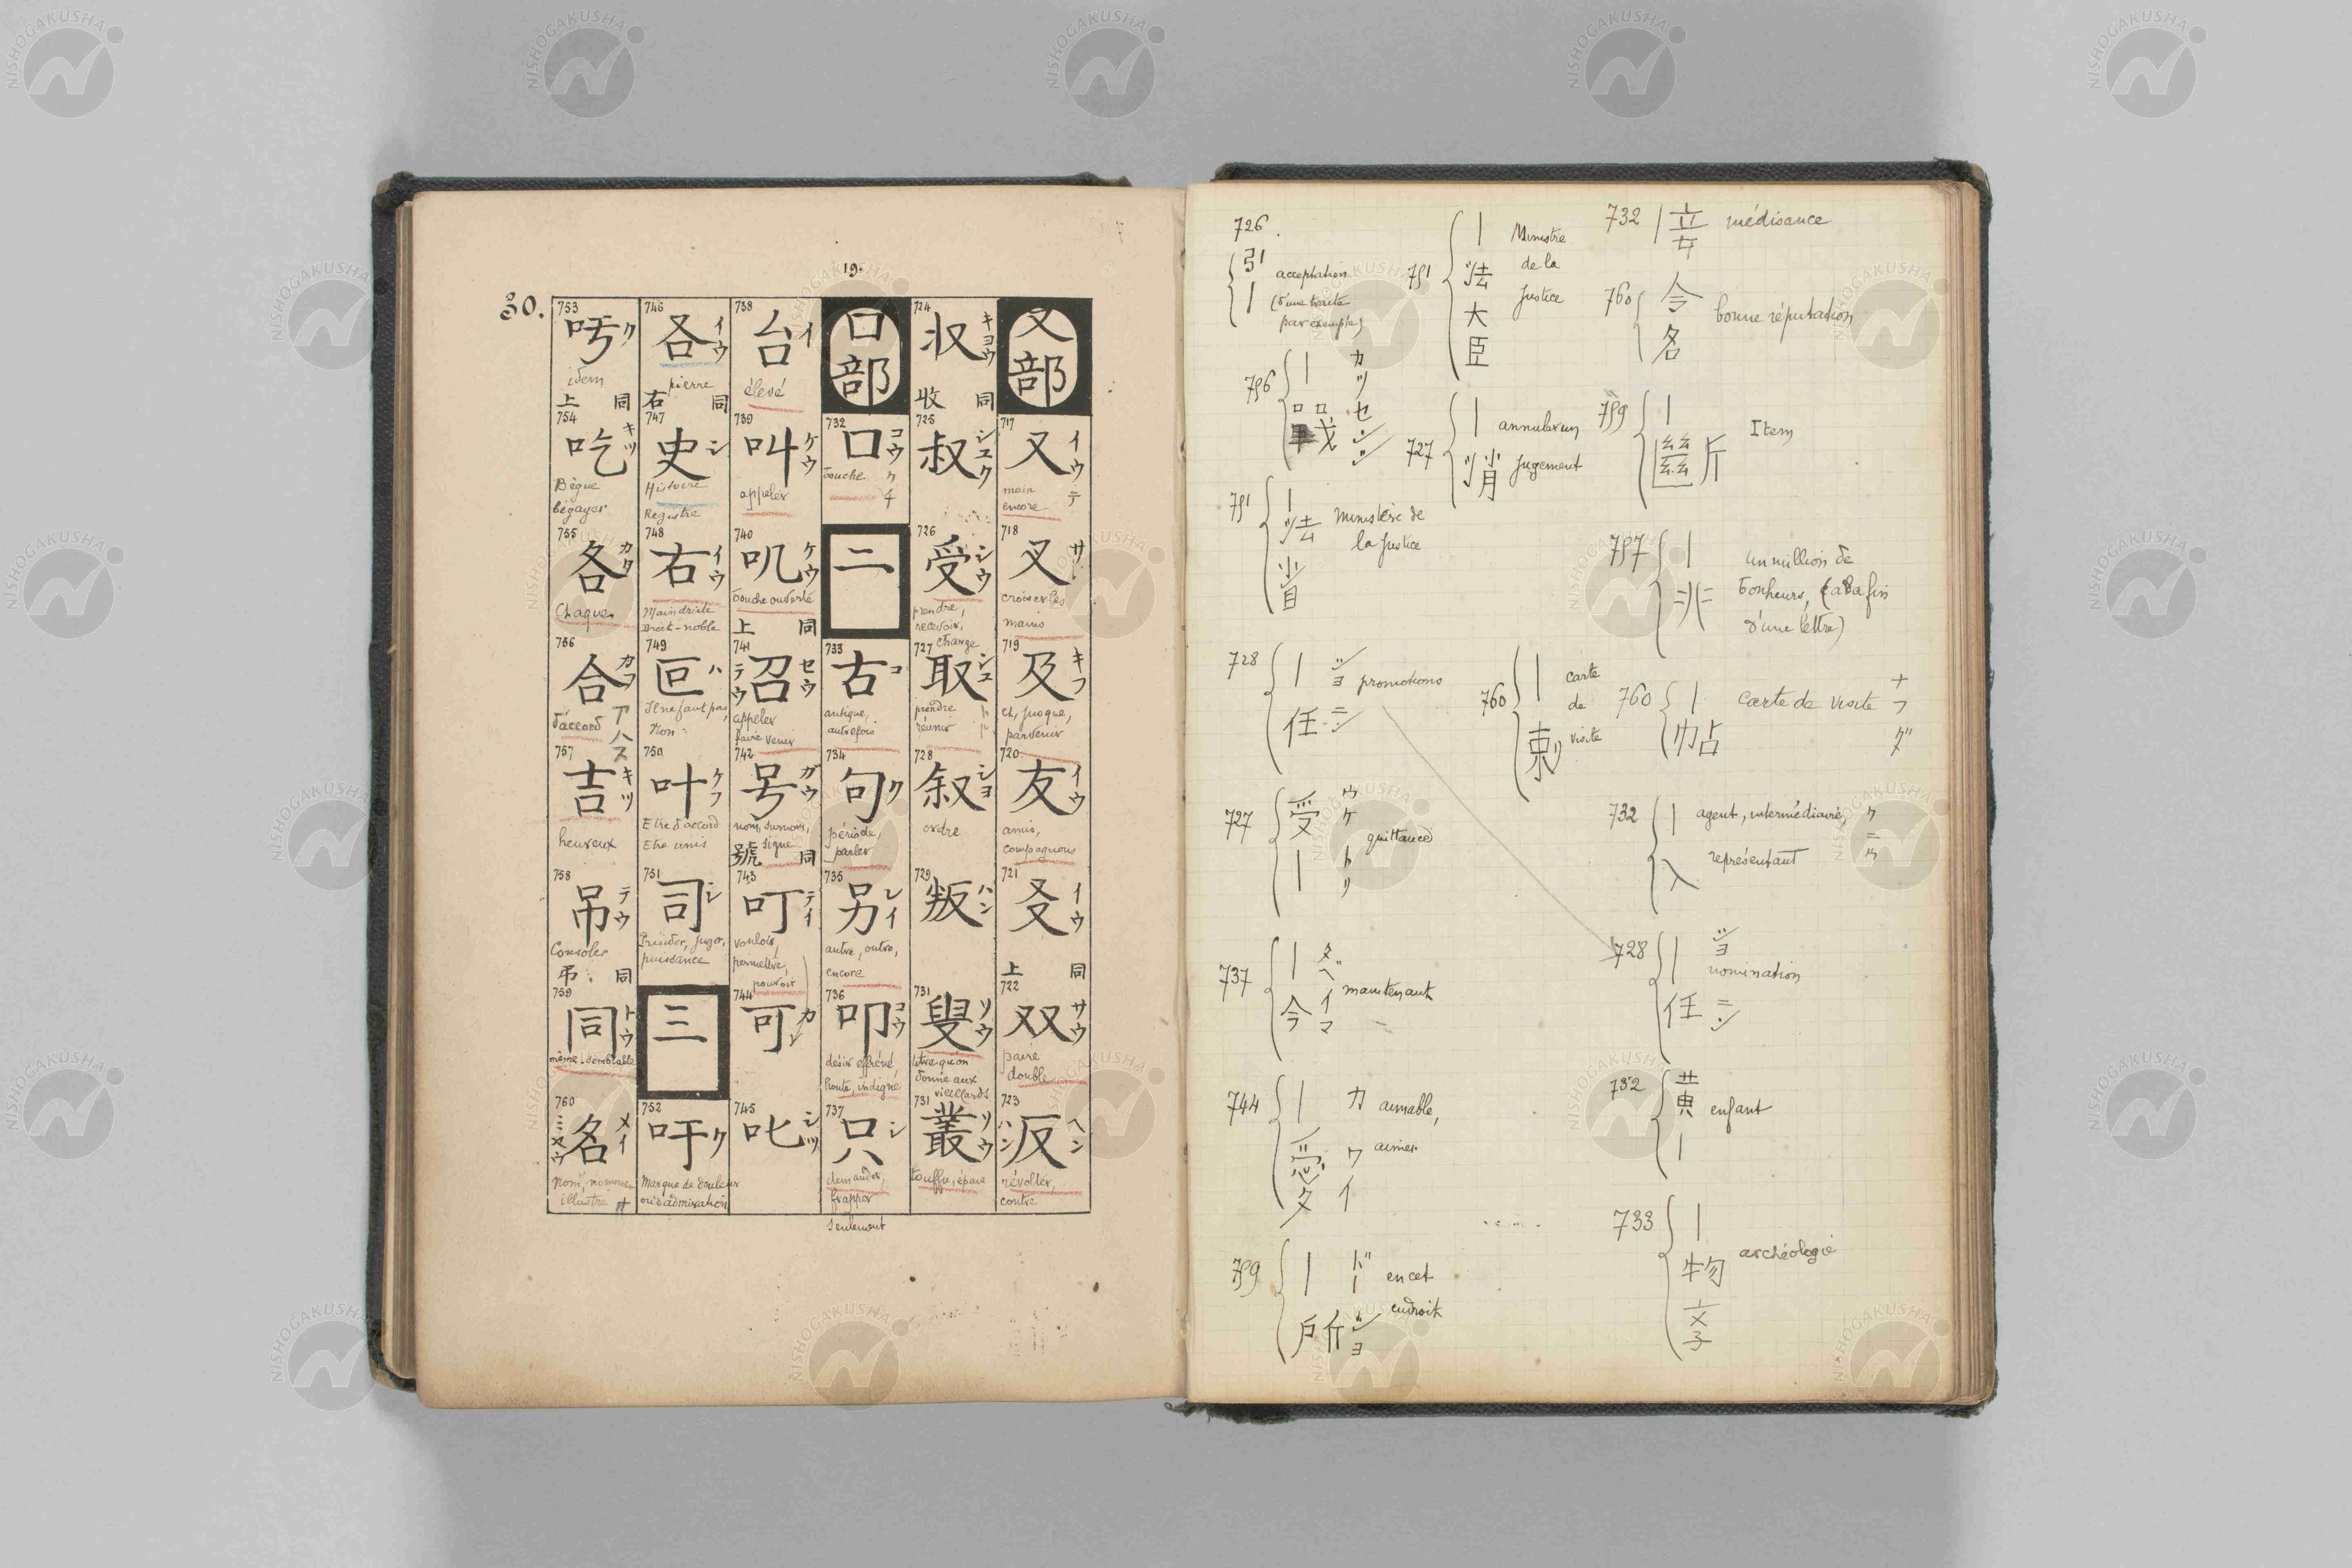 19.
30.
又部
717
又 イウ
テ
main
encore
718
叉 サ
croiser les
mains
719
及 キフ
et, jusque,
parvenir
720
友 イウ
amis,
compagnons
721
㕛 イウ
上 同
722
双 サウ
paire
double
723
反 ヘン
ハン
révolter,
contre
724
収 キヨウ
收 同
725
叔 シユク
726
受 シウ
prendre,
recevoir,
change
727
取 シユ
prendre
réunir
728
叙 シヨ
ordre
729
叛 ハン
731
叟 ソウ
titre qu'on
donne aux
vieillards
731
叢 ソウ
touffu, épais
口部
732
口 コウ
クチ
bouche
二
733
古 コ
antique,
autrefois
734
句 ク
période,
parler
735
另 レイ
autre, outre,
encore
736
叩 コウ
désir effréné,
honte, indigne
737
只 シ
demander,
frapper
seulement
738
台 イ
élevé
739
叫 ケウ
appeler
740
叽 ケウ
bouche ouverte
上 同
741
召 セウ
テウ
appeler
faire venir
742
号 ガウ
nom, surnom,
signe
號 同
743
叮 テイ
vouloir,
permettre,
pouvoir
744
可 カ
745
叱 シツ
746
各 イウ
pierre
右 同
747
史 シ
Histoire
Registre
748
右 イウ
Main droite
Droit-noble
749
叵 ハ
Il ne faut pas,
Non
750
叶 ケフ
Etre d'accord
Etre unis
751
司 シ
Présider, juger,
puissance
三
752
吁 ク
Marque de douleur
ou d'admiration
753
吁 ク
idem
上 同
754
吃 キツ
Bègue
bégayer
755
各 カク
Chaque
756
合 カフ
アハス
d'accord
757
吉 キツ
heureux
758
吊 テウ
Consoler
弔. 同
759
同 トウ
même, semblable
760
名 メイ
ミヤウ
Nom, nommer
illustre
726.
引 acceptation
| (d'une traite
par exemple)
756
| カツ
咄 セン
751
| Ministère de
法 la Justice
省
728
| ジヨ promotions
任 ニン
727
受 ウケ quittance
| トリ
737
| タヾ
今 イマ maintenant
744
| カ aimable,
愛 ワイ aimer
759
| ドー en cet
所 ジヨ endroit
751
| Ministre
法 de la
大 Justice
臣
727
| annuler un
消 jugement
760
| carte
de
刺 visite
732
| 音 médisance
760
令
名 bonne réputation
759
| Item
断
757
| un million de
bonheurs, (à la fin
d'une lettre)
760
| carte de visite ナフダ
帖
732
| agent, intermédiaire,
入 représentant
クニウ
728
| ジヨ
nomination
任 ニン
732
黄 enfant
|
733
| archéologie
物
文
NISHOGAKUSHA